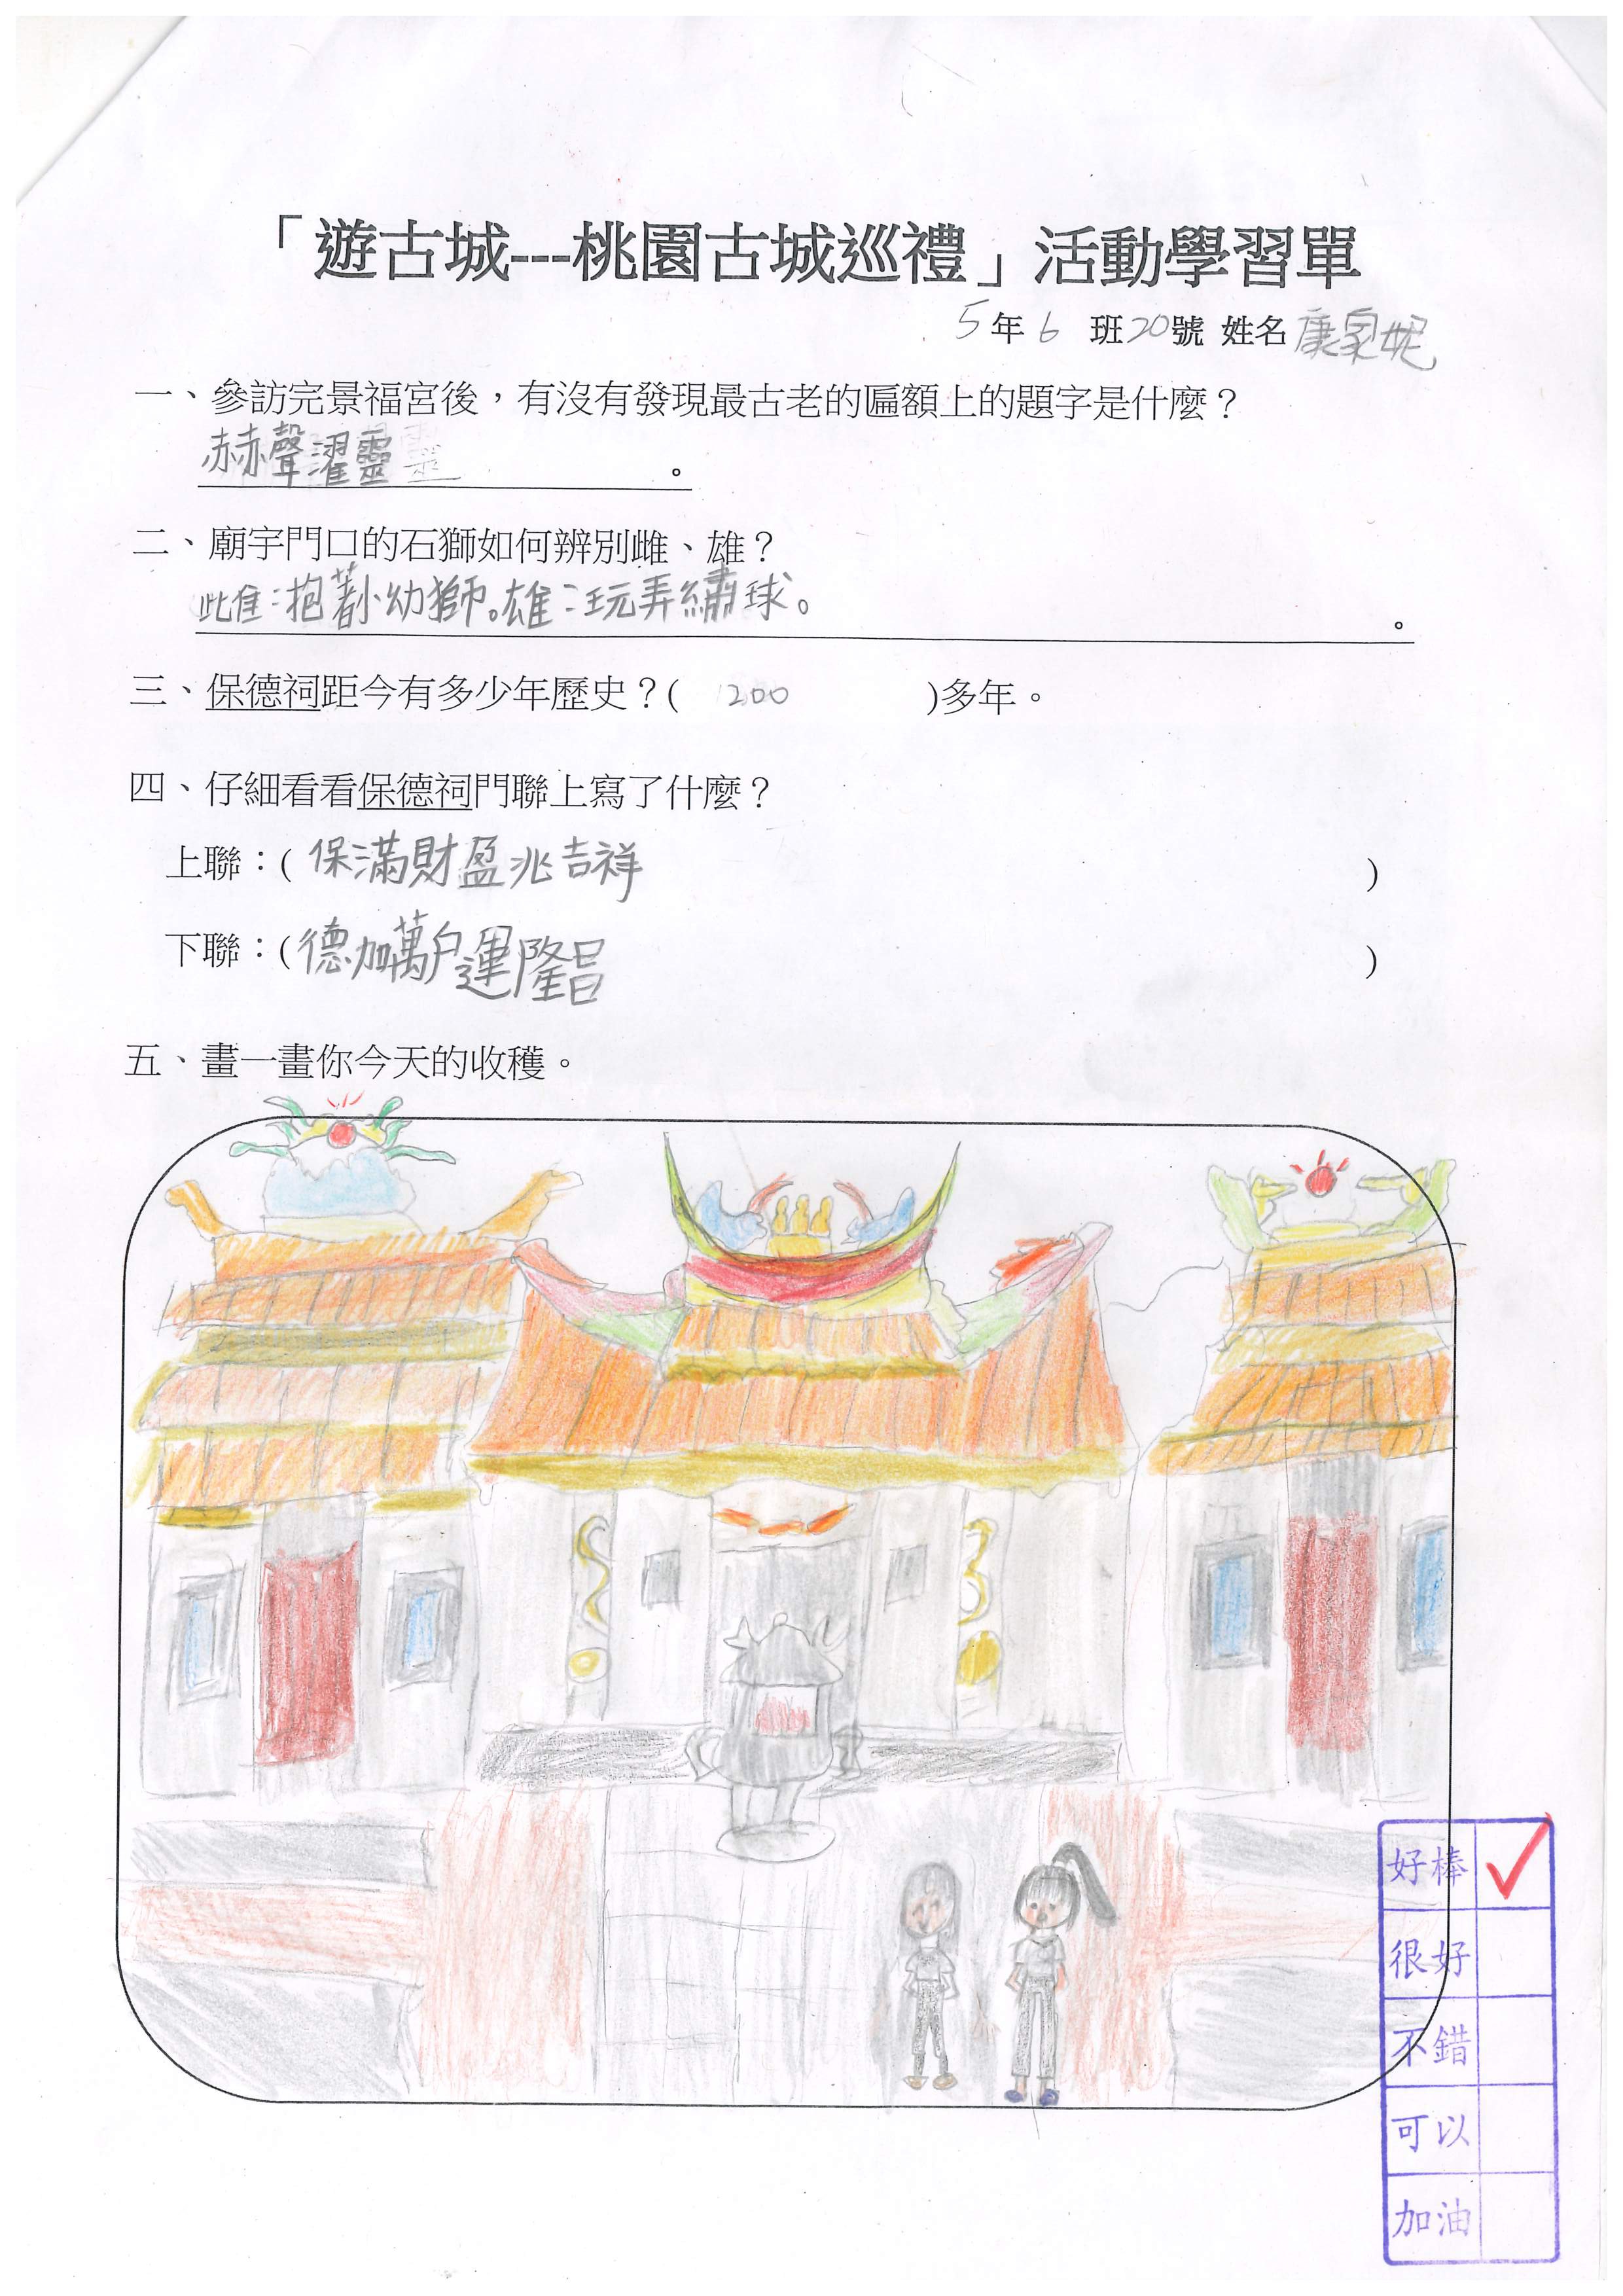 「遊古城---桃園古城巡禮」活動學習單
5年6班20號 姓名康家妮
一、參訪完景福宮後，有沒有發現最古老的匾額上的題字是什麼？
赫聲濯靈。
二、廟宇門口的石獅如何辨別雌、雄？
雌：抱著小幼獅。雄：玩弄繡球。。
三、保德祠距今有多少年歷史？( 200 )多年。
四、仔細看看保德祠門聯上寫了什麼？
上聯：( 保滿財盈兆吉祥 )
下聯：( 德加萬戶運隆昌 )
五、畫一畫你今天的收穫。
好棒 ✓
很好
不錯
可以
加油